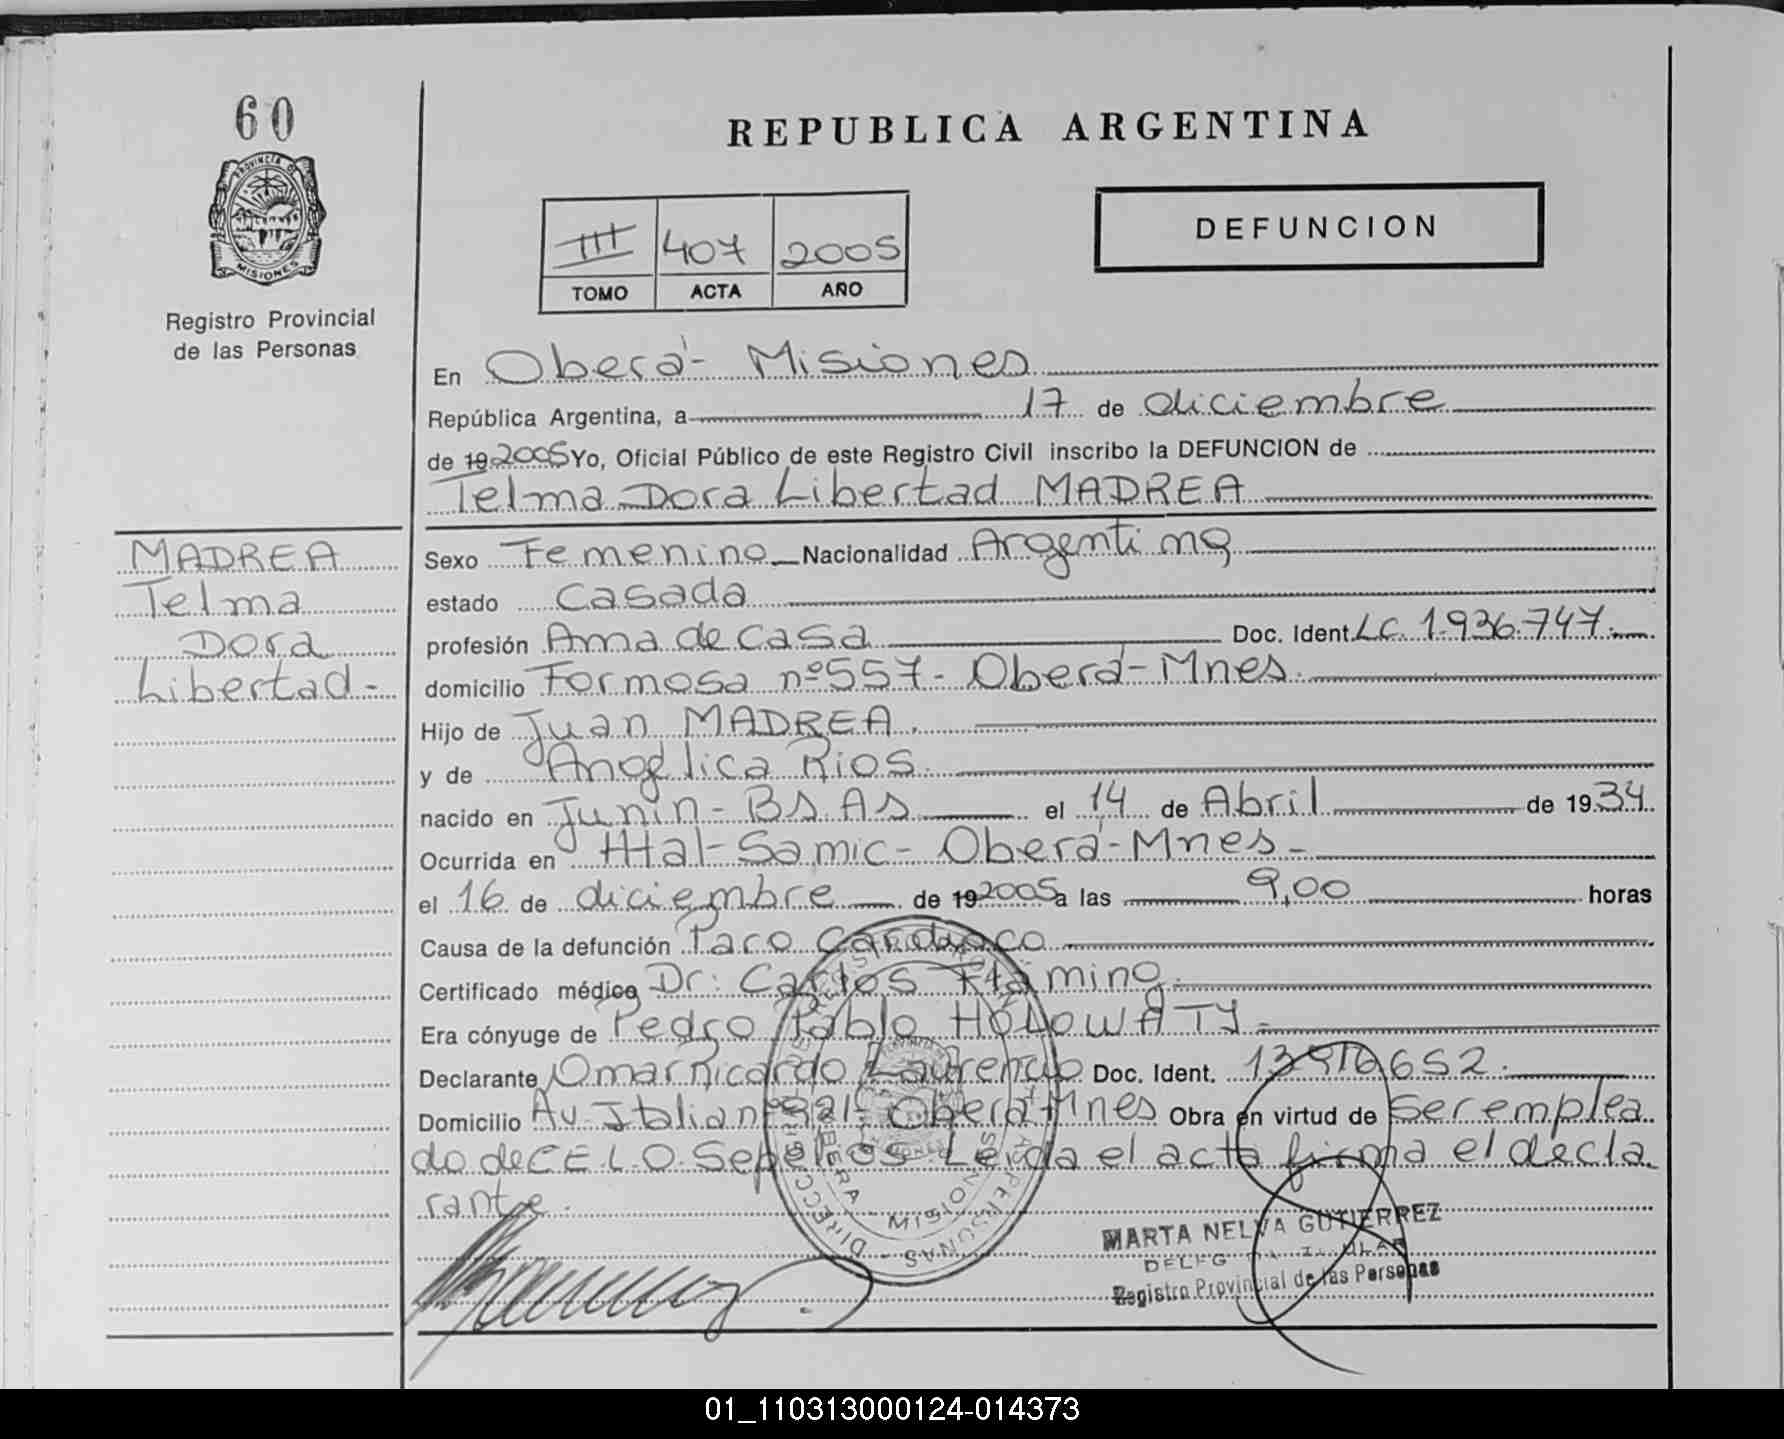 60
PROVINCIA DE
MISIONES
Registro Provincial
de las Personas
REPUBLICA ARGENTINA
III 407 2005
TOMO ACTA AÑO
DEFUNCION
En Oberá - Misiones
República Argentina, a 17 de diciembre
de 19 2005 Yo, Oficial Público de este Registro Civil inscribo la DEFUNCION de
Telma Dora Libertad MADREA
MADREA
Telma
Dora
Libertad -
Sexo Femenino Nacionalidad Argentina
estado Casada
profesión Ama de casa Doc. Ident. LC. 1.936.747.
domicilio Formosa nº 557 - Oberá - Mnes.
Hijo de Juan MADREA.
y de Angélica Rios.
nacido en Junin - Bs As el 14 de Abril de 1934.
Ocurrida en Htal - Samic - Oberá - Mnes -
el 16 de diciembre de 19 2005 a las 9,00 horas
Causa de la defunción Paro Cardiaco
Certificado médico Dr: Carlos
Era cónyuge de Pedro Pablo HOLOWATY -
Declarante Omar Ricardo Doc. Ident.
Domicilio Av. Italia nº Oberá - Mnes Obra en virtud de ser emplea
do de C.E.L.O. Sepelios Leida el acta firma el decla
rante.
MARTA NELVA GUTIERREZ
Registro Provincial de las Personas
01_110313000124-014373